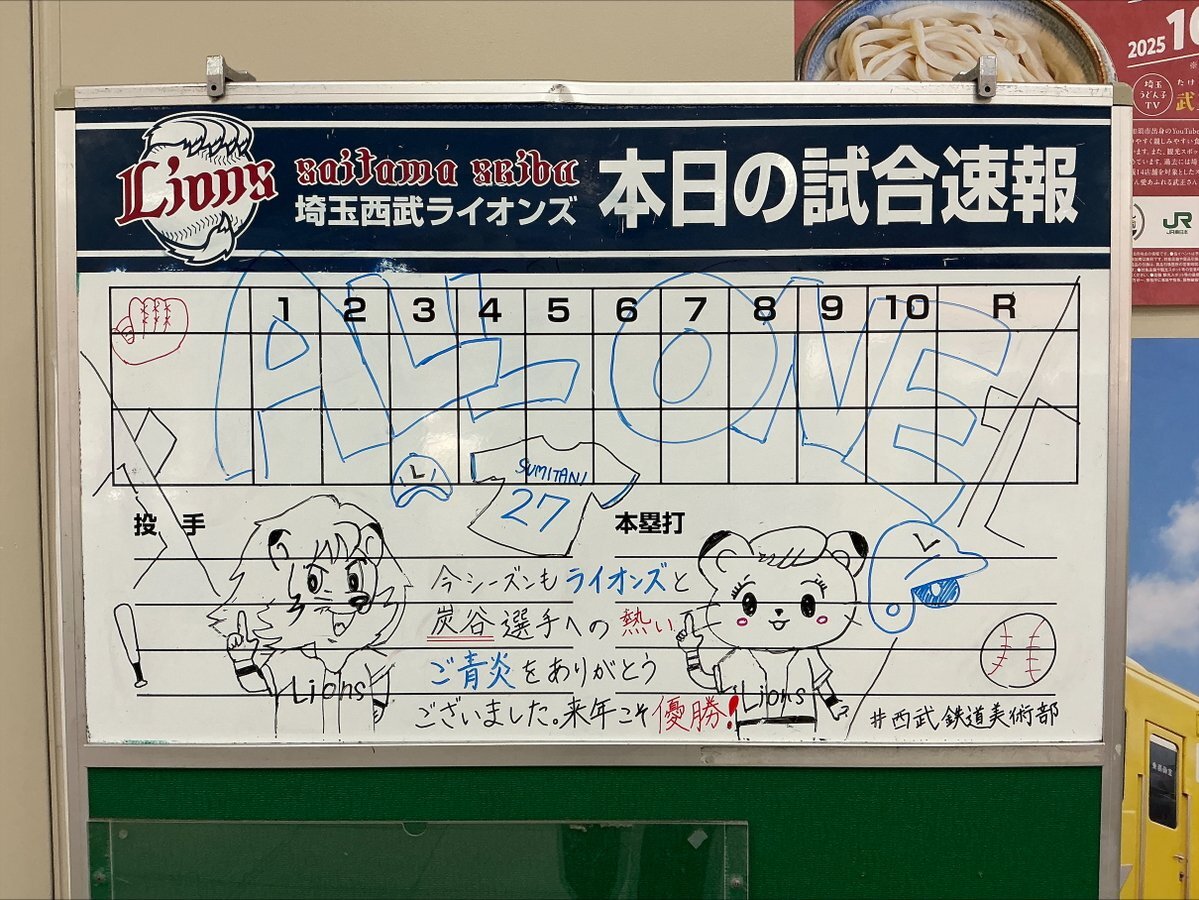 2025 10
埼玉
うどん子
TV
たけ
武
JR
JR東日本
Lions
saitama seibu
埼玉西武ライオンズ
本日の試合速報
1 2 3 4 5 6 7 8 9 10 R
ALL-ONE
L
SUMITANI
27
投手
本塁打
L
今シーズンもライオンズと
炭谷選手への熱い
ご青炎をありがとう
ございました。来年こそ優勝!
Lions
Lions
#西武鉄道美術部